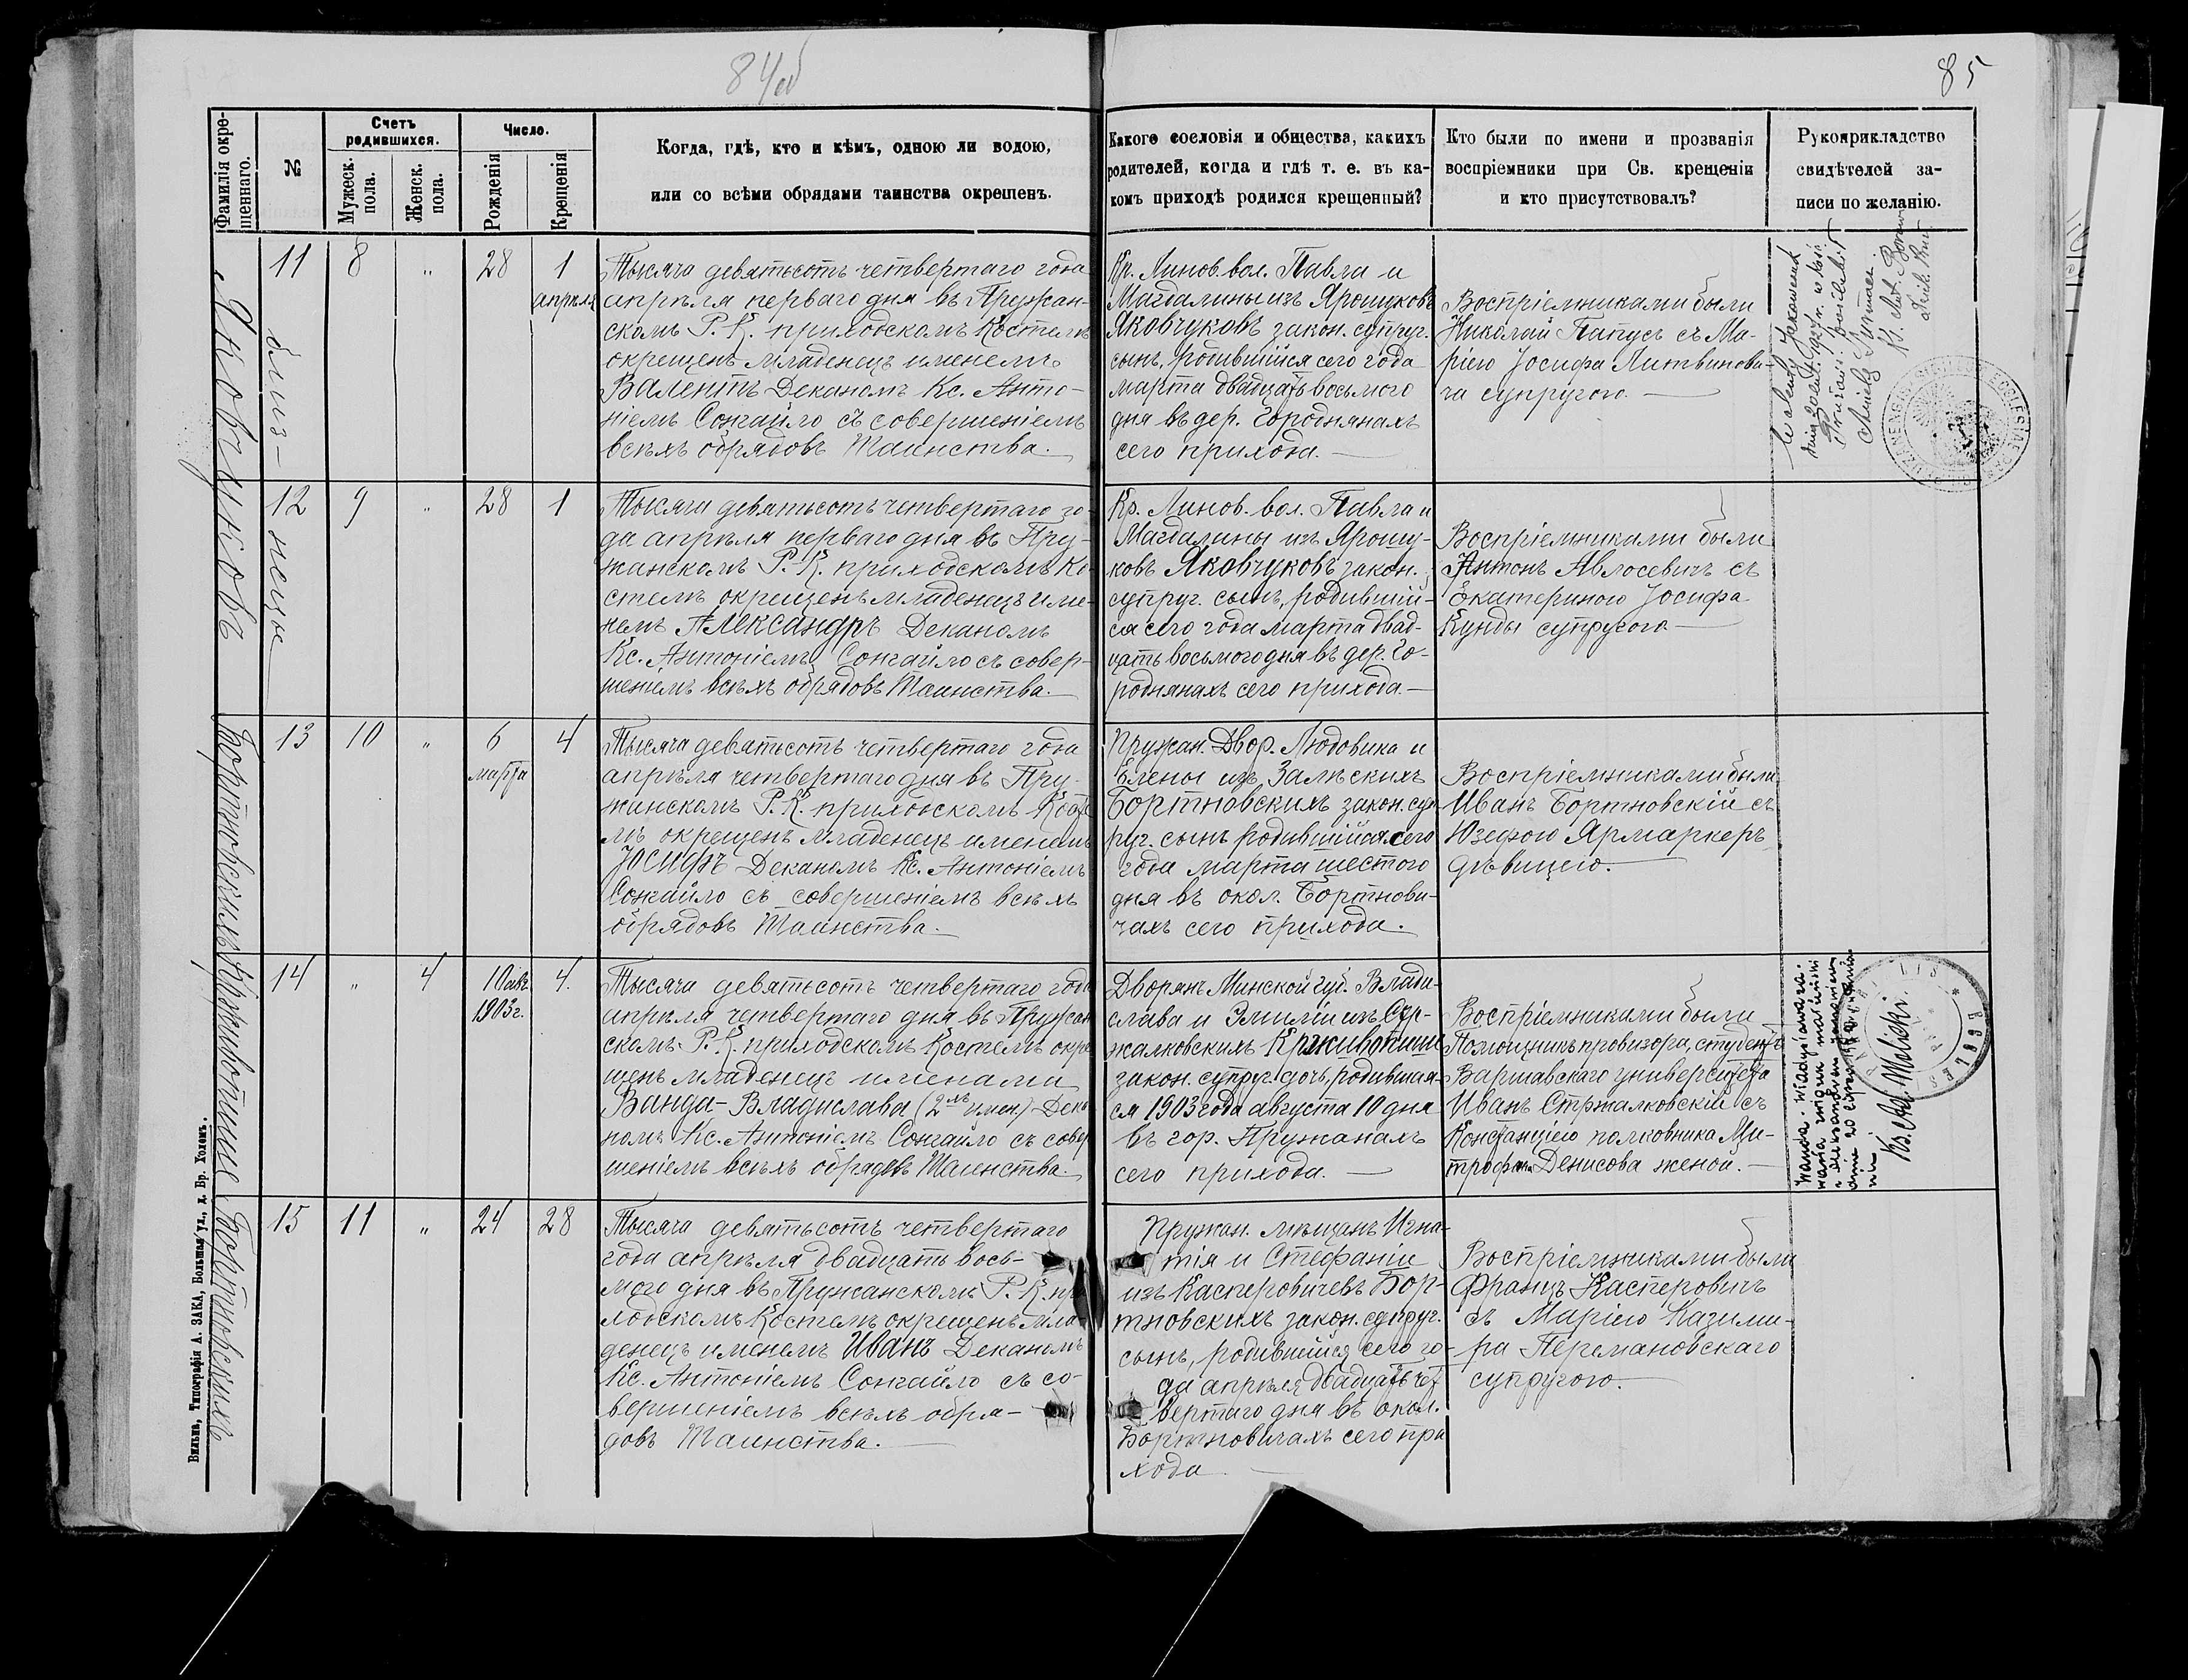 84об
85
Фамилія окре-
щеннаго.
№
Счетъ
родившихся.
Мужеск.
пола.
Женск.
пола.
Число.
Рожденія
Крещенія
Когда, гдѣ, кто и кѣмъ, одною ли водою,
или со всѣми обрядами таинства окрещенъ.
Какого сословія и общества, какихъ
родителей, когда и гдѣ т. е. въ ка-
комъ приходѣ родился крещенный?
Кто были по имени и прозванія
воспріемники при Св. крещеніи
и кто присутствовалъ?
Рукоприкладство
свидѣтелей за-
писи по желанію.
Яковчуковъ
близ-
нецы
11
8
"
28
1
апрѣля
Тысяча девятьсотъ четвертаго года
апрѣля перваго дня въ Пружан-
скомъ Р. К. приходскомъ Костелѣ
окрещенъ младенецъ именемъ
Валентъ Деканомъ Кс. Анто-
ніемъ Сонгайло съ совершеніемъ
всѣхъ обрядовъ Таинства.
Кр. Линов. вол. Павла и
Магдалины изъ Ярошуковъ
Яковчуковъ закон. супруг.
сынъ, родившійся сего года
марта двадцать восьмого
дня въ дер. Городнянахъ
сего прихода.
Воспріемниками были
Николай Папусь съ Ма-
ріею Іосифа Литвинови-
ча супругою.
12
9
"
28
1
Тысяча девятьсотъ четвертаго го-
да апрѣля перваго дня въ Пру-
жанскомъ Р. К. приходскомъ Ко-
стелѣ окрещенъ младенецъ име-
немъ Александръ Деканомъ
Кс. Антоніемъ Сонгайло съ совер-
шеніемъ всѣхъ обрядовъ Таинства.
Кр. Линов. вол. Павла и
Магдалины изъ Ярошу-
ковъ Яковчуковъ закон.
супруг. сынъ, родившій-
ся сего года марта двад-
цать восьмого дня въ дер. Го-
роднянахъ сего прихода.
Воспріемниками были
Антонъ Авлосевичъ съ
Екатериною Іосифа
Кунды супругою
Бортновскихъ
13
10
"
6
марта
4
Тысяча девятьсотъ четвертаго года
апрѣля четвертаго дня въ Пру-
жанскомъ Р. К. приходскомъ Косте-
лѣ окрещенъ младенецъ именемъ
Іосифъ Деканомъ Кс. Антоніемъ
Сонгайло съ совершеніемъ всѣхъ
обрядовъ Таинства.
Пружан. Двор. Людовика и
Елены изъ Залѣскихъ
Бортновскихъ закон. суп-
руг. сынъ родившійся сего
года марта шестого
дня въ окол. Бортнови-
чахъ сего прихода.
Воспріемниками были
Иванъ Бортновскій съ
Юзефою Ярмаркеръ
дѣвицею.
Крживопише
14
"
4
10 авг.
1903 г.
4.
Тысяча девятьсотъ четвертаго года
апрѣля четвертаго дня въ Пружан-
скомъ Р. К. приходскомъ Костелѣ окре-
щенъ младенецъ именами
Ванда-Владислава (2мъ имен.) Дека-
номъ Кс. Антоніемъ Сонгайло съ совер-
шеніемъ всѣхъ обрядовъ Таинства.
Дворянъ Минской губ. Влади-
слава и Эмиліи изъ Стр-
жалковскихъ Крживопише
закон. супруг. дочь, родившая-
ся 1903 года августа 10 дня
въ гор. Пружанахъ
сего прихода.
Воспріемниками были
Помощникъ провизора, студентъ
Варшавскаго университета
Иванъ Стржалковскій съ
Констанціею полковника Ми-
трофана Денисова женой.
Wanda-Władysława
Ks. Ad. Molicki.
Бортновскихъ
15
11
"
24
28
Тысяча девятьсотъ четвертаго
года апрѣля двадцать вось-
мого дня въ Пружанскомъ Р. К. при-
ходскомъ Костелѣ окрещенъ мла-
денецъ именемъ Иванъ Деканомъ
Кс. Антоніемъ Сонгайло съ со-
вершеніемъ всѣхъ обря-
довъ Таинства.
Пружан. мѣщанъ Игна-
тія и Стефаніи
изъ Касперовичевъ Бор-
тновскихъ закон. супруг.
сынъ, родившійся сего го-
да апрѣля двадцать чет-
вертаго дня въ окол.
Бортновичахъ сего при
хода
Воспріемниками были
Францъ Касперовичъ
съ Маріею Казими-
ра Перемановскаго
супругою.
Вильна, Типографія А. ЗАКА, Большая ул., д. Бр. Холемъ.